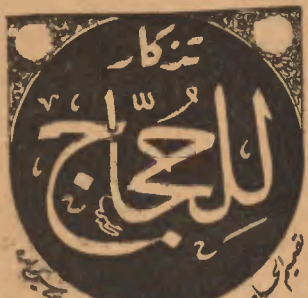 تذكار
للحجاج